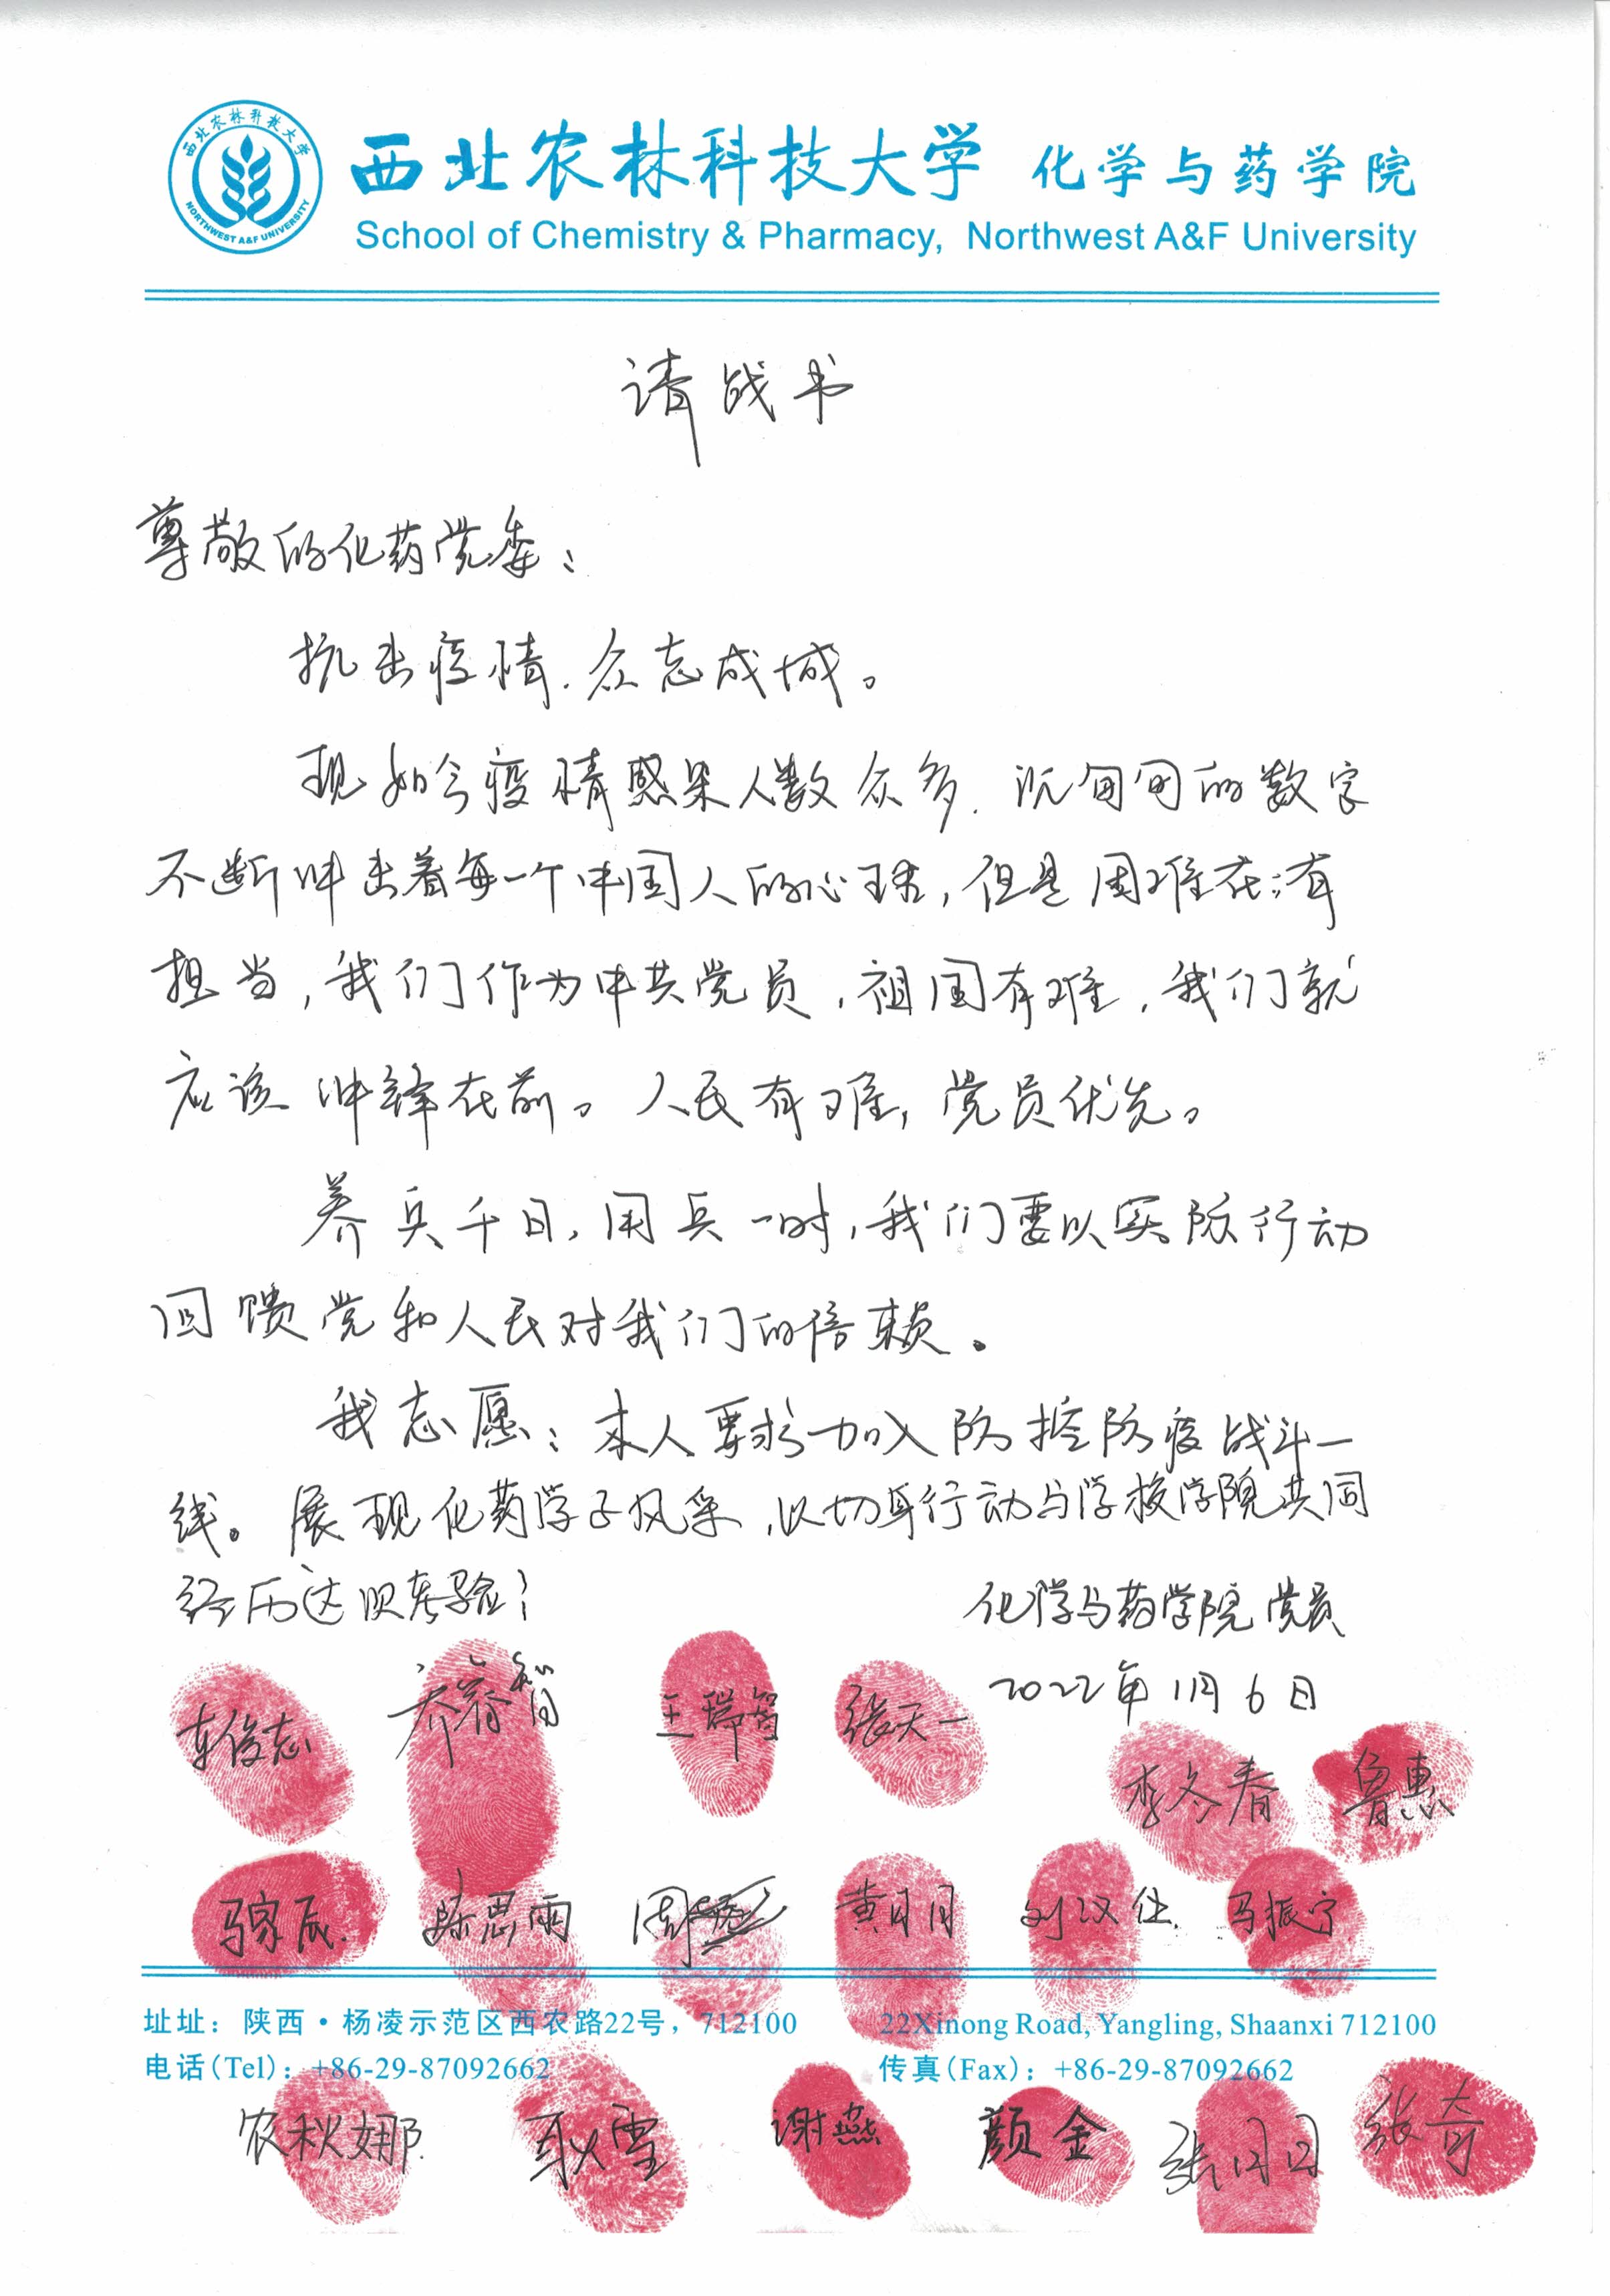 西北农林科技大学
NORTHWEST A&F UNIVERSITY
西北农林科技大学 化学与药学院
School of Chemistry & Pharmacy, Northwest A&F University
请战书
尊敬的化药党委：
抗击疫情，众志成城。
现如今疫情感染人数众多，沉甸甸的数字
不断冲击着每一个中国人的心理，但是困难在，有
担当，我们作为中共党员，祖国有难，我们就
应该冲锋在前。人民有难，党员优先。
养兵千日，用兵一时，我们要以实际行动
回馈党和人民对我们的信赖。
我志愿：本人要求加入防控防疫战斗一
线。展现化药学子风采，以切身行动与学校学院共同
经历这次考验！
化学与药学院党员
2022年1月6日
车俊志 乔睿智 王瑞智 张天一
李冬春 鲁惠
马家辰 陈思雨 周 黄月月 刘汉仕 马振宁
址址：陕西·杨凌示范区西农路22号，712100 22Xinong Road, Yangling, Shaanxi 712100
电话(Tel)：+86-29-87092662 传真(Fax)：+86-29-87092662
农秋娜 耿雪 谢燕 颜金 张月月 张奇